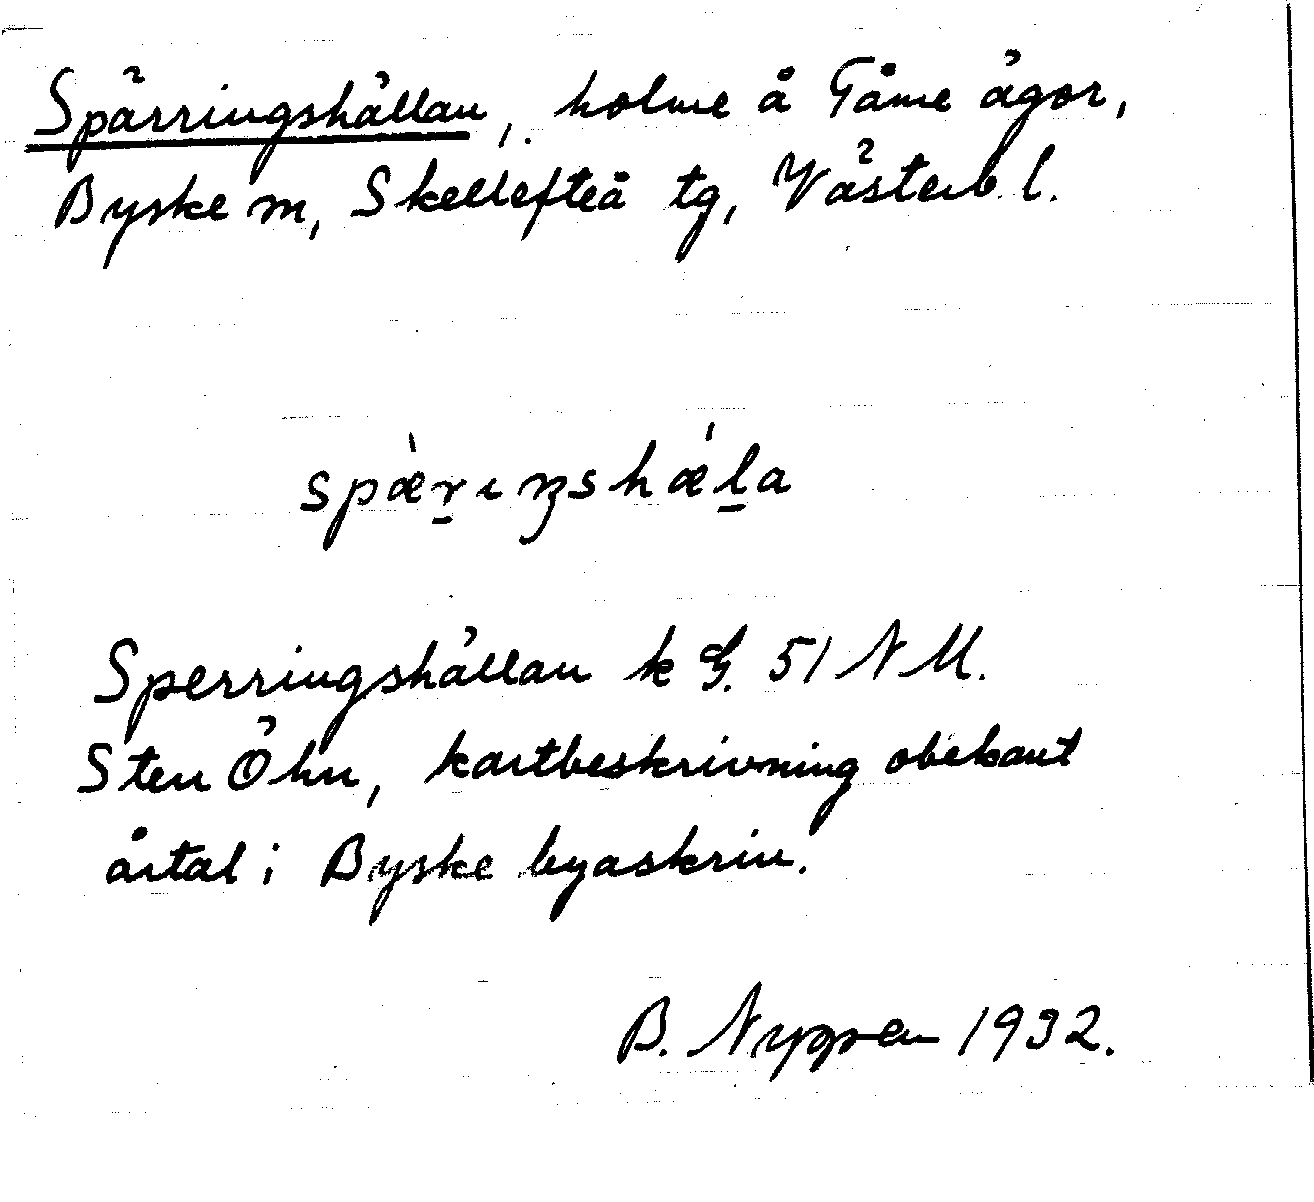 Spärringshällan, holme å Tåme ägor,
Byske sn, Skellefteå tg, Västerb. l.
spæ̀r̲ıŋshǽl̲a
Sperringshällan k G. 51 N M.
Sten Öhn, kartbeskrivning obekant
årtal i Byske byaskrin.
B. Nyppen 1932.